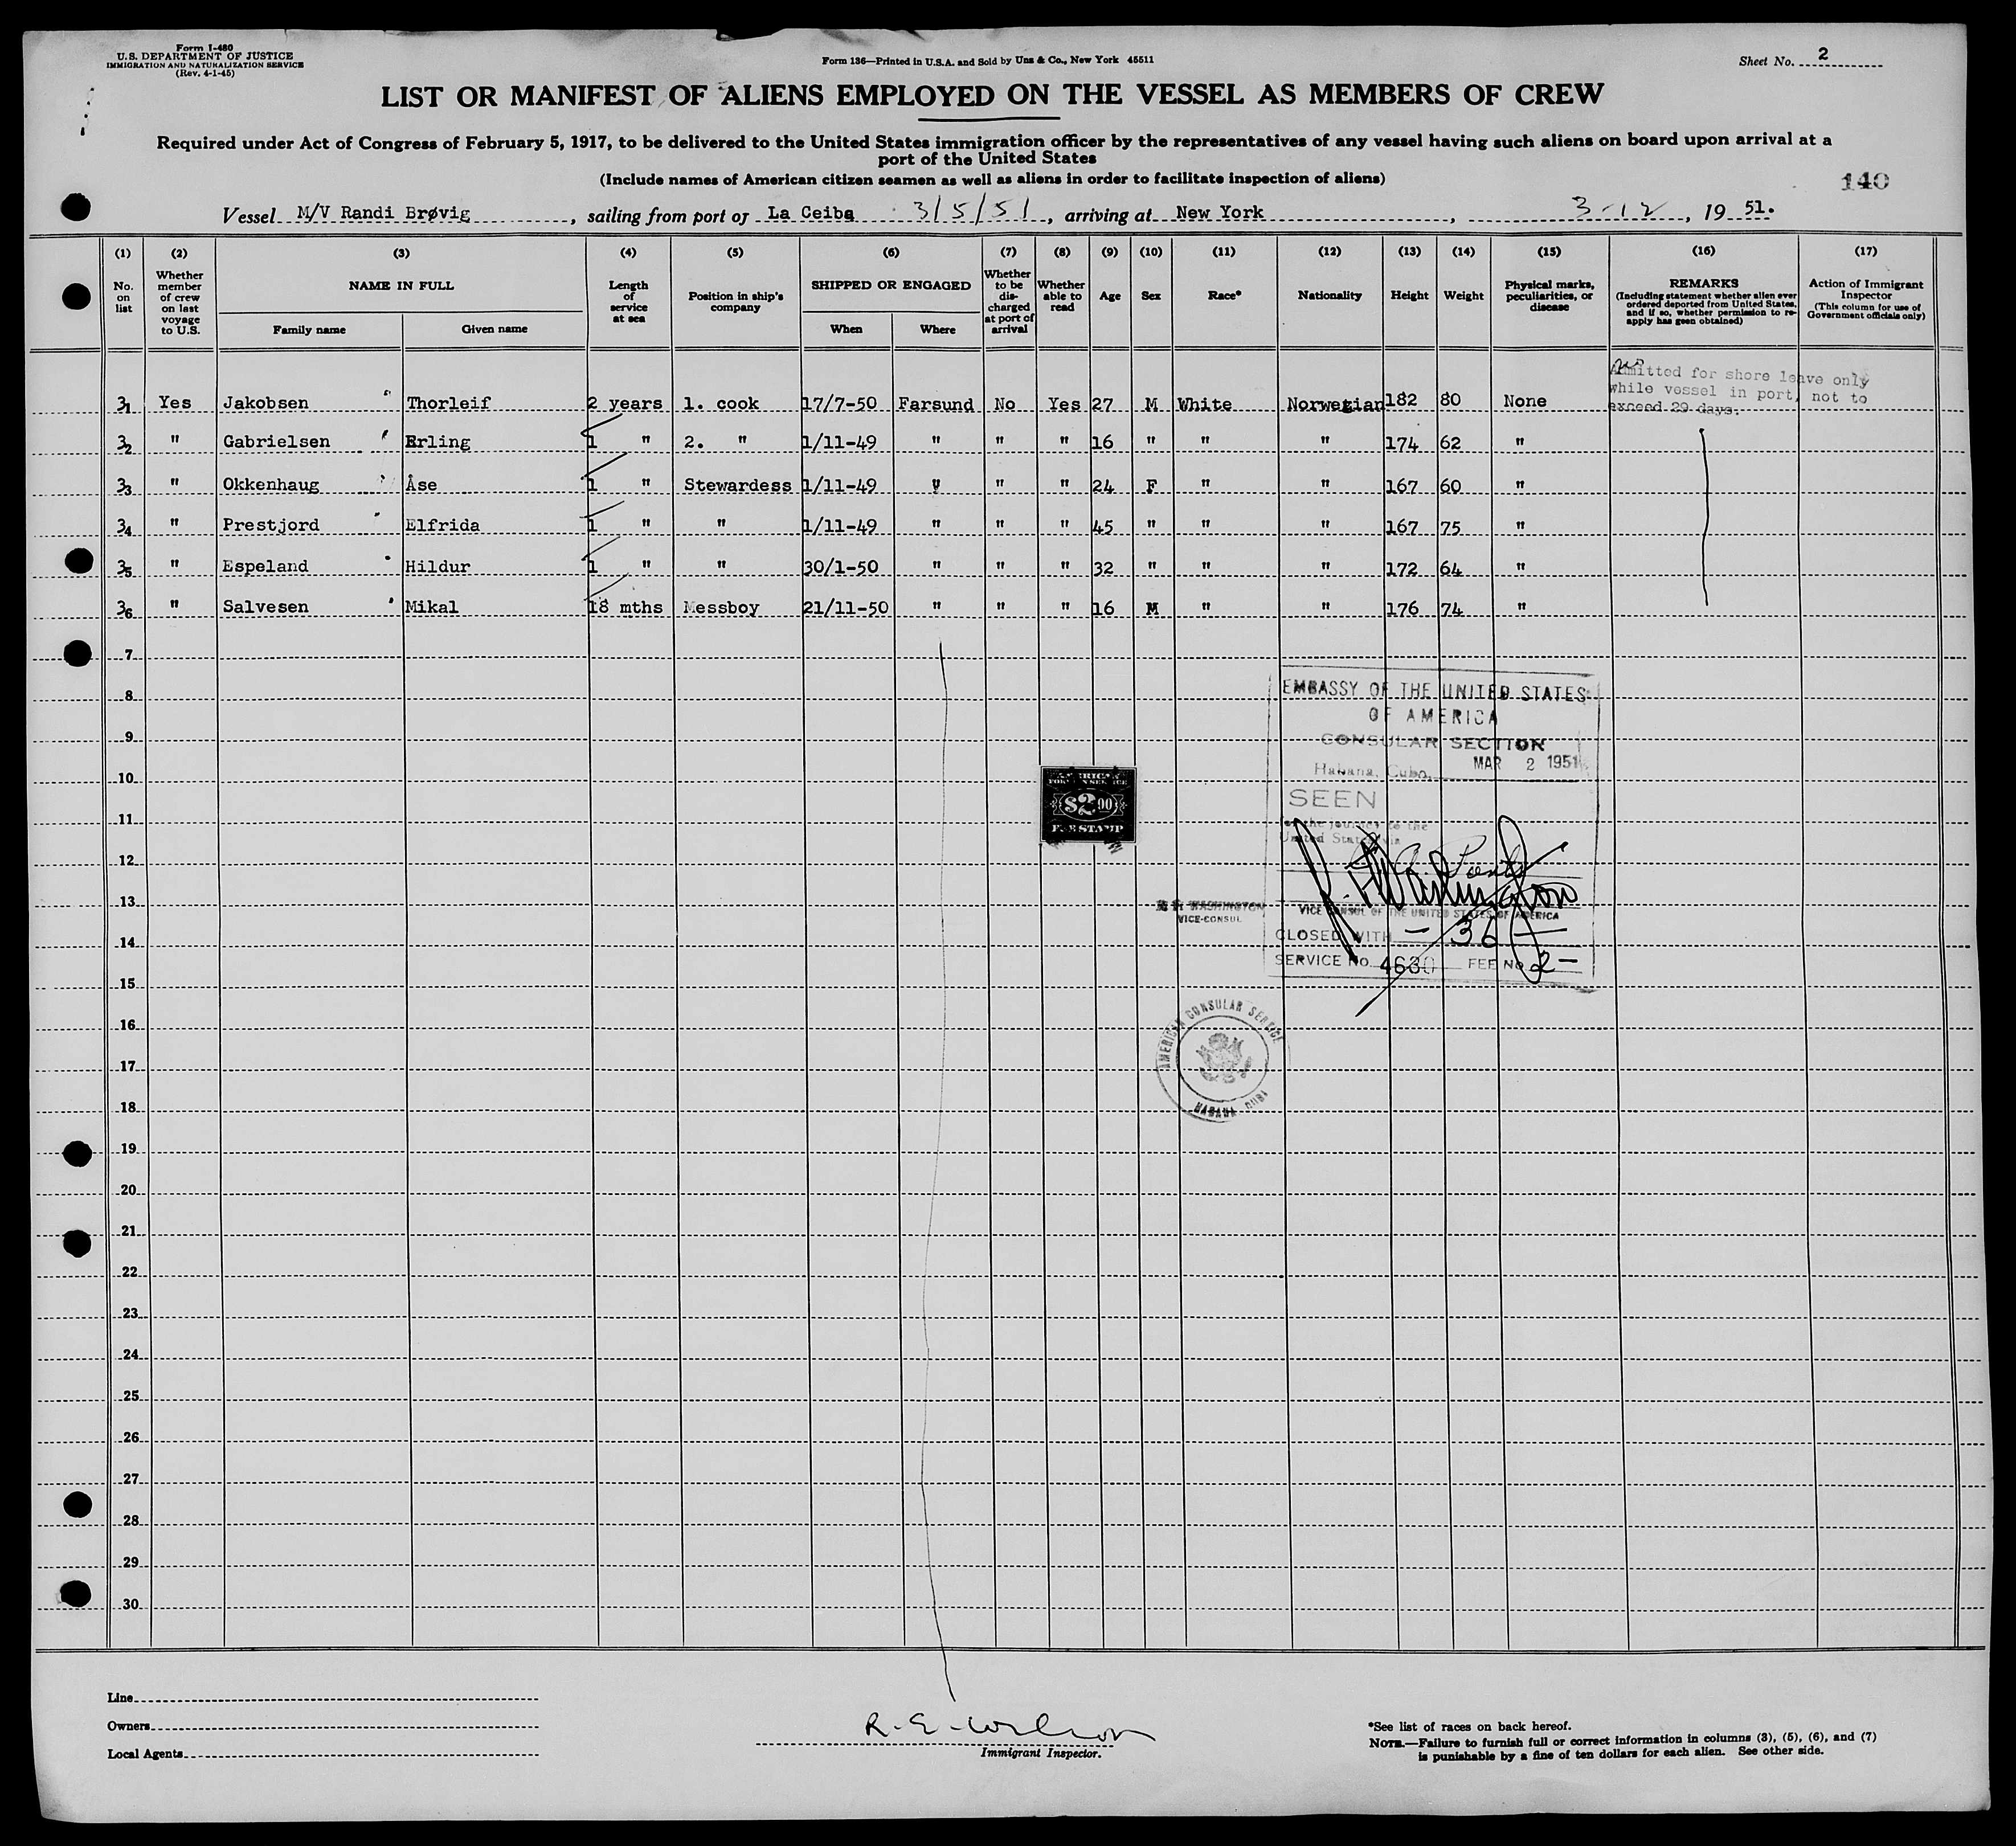 Form I-480
U.S. DEPARTMENT OF JUSTICE
IMMIGRATION AND NATURALIZATION SERVICE
(Rev. 4-1-45)
Form 136—Printed in U.S.A. and Sold by Unz & Co., New York 45511
Sheet No. 2
LIST OR MANIFEST OF ALIENS EMPLOYED ON THE VESSEL AS MEMBERS OF CREW
Required under Act of Congress of February 5, 1917, to be delivered to the United States immigration officer by the representatives of any vessel having such aliens on board upon arrival at a
port of the United States
(Include names of American citizen seamen as well as aliens in order to facilitate inspection of aliens)
140
Vessel M/V Randi Brøvig, sailing from port of La Ceiba 3/5/51, arriving at New York, 3-12, 1951.
(1) (2) (3) (4) (5) (6) (7) (8) (9) (10) (11) (12) (13) (14) (15) (16) (17)
No. on list
Whether member of crew on last voyage to U.S.
NAME IN FULL
Family name Given name
Length of service at sea
Position in ship's company
SHIPPED OR ENGAGED
When Where
Whether to be discharged at port of arrival
Whether able to read
Age
Sex
Race*
Nationality
Height
Weight
Physical marks, peculiarities, or disease
REMARKS
(Including statement whether alien ever ordered deported from United States, and if so, whether permission to re-apply has geen obtained)
Action of Immigrant Inspector
(This column for use of Government officials only)
Admitted for shore leave only
while vessel in port, not to
exceed 29 days.
31 Yes Jakobsen Thorleif 2 years 1. cook 17/7-50 Farsund No Yes 27 M White Norwegian 182 80 None
32 " Gabrielsen Erling 1 " 2. " 1/11-49 " " " 16 " " " 174 62 "
33 " Okkenhaug Åse 1 " Stewardess 1/11-49 " " " 24 F " " 167 60 "
34 " Prestjord Elfrida 1 " " 1/11-49 " " " 45 " " " 167 75 "
35 " Espeland Hildur 1 " " 30/1-50 " " " 32 " " " 172 64 "
36 " Salvesen Mikal 18 mths Messboy 21/11-50 " " " 16 M " " 176 74 "
7
8
9
10
11
12
13
14
15
16
17
18
19
20
21
22
23
24
25
26
27
28
29
30
EMBASSY OF THE UNITED STATES
OF AMERICA
CONSULAR SECTION
Habana, Cuba, MAR 2 1951
SEEN
for the journey to the
United States via
AMERICAN
FOREIGN SERVICE
$2.00
FEE STAMP
WASHINGTON
VICE-CONSUL
VICE CONSUL OF THE UNITED STATES OF AMERICA
CLOSED WITH - 36 -
SERVICE No. 4630 FEE No. 2-
AMERICAN CONSULAR SERVICE
HABANA, CUBA
Line
Owners
Local Agents
R. E. Wilson
Immigrant Inspector.
*See list of races on back hereof.
NOTE.—Failure to furnish full or correct information in columns (3), (5), (6), and (7)
is punishable by a fine of ten dollars for each alien. See other side.